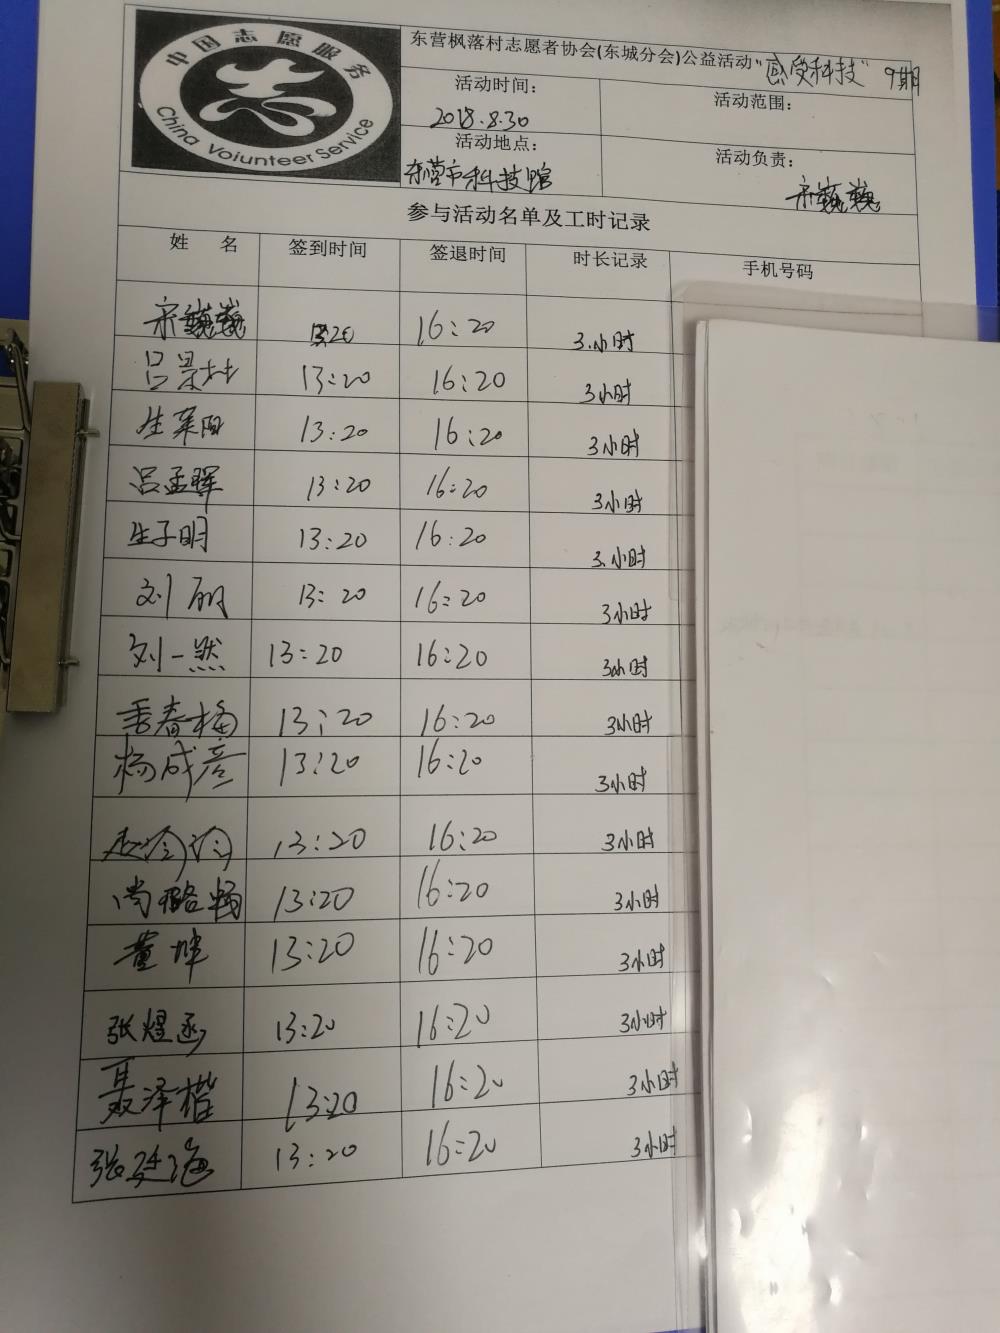 中国志愿服务
China Voiunteer Service
东营枫落村志愿者协会(东城分会)公益活动"感受科技" 9期
活动时间：
2018.8.30
活动范围：
活动地点：
东营市科技馆
活动负责：
宋巍巍
参与活动名单及工时记录
姓 名 签到时间 签退时间 时长记录 手机号码
宋巍巍 13:20 16:20 3小时
吕景林 13:20 16:20 3小时
生莱阳 13:20 16:20 3小时
吕孟晖 13:20 16:20 3小时
生子明 13:20 16:20 3小时
刘丽 13:20 16:20 3小时
刘一然 13:20 16:20 3小时
季春梅 13:20 16:20 3小时
杨成彦 13:20 16:20 3小时
13:20 16:20 3小时
尚璐畅 13:20 16:20 3小时
董坤 13:20 16:20 3小时
张煜函 13:20 16:20 3小时
聂泽楷 13:20 16:20 3小时
张廷海 13:20 16:20 3小时